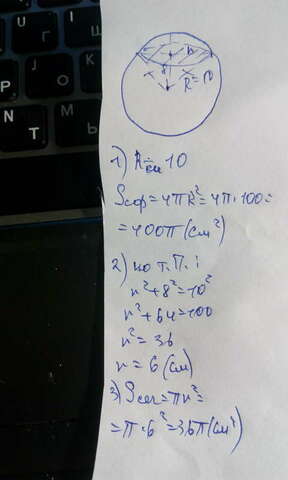 Г
Ш
Щ
О
Л
Д
N
T
Ь
r
8
R=10
1) R = 10
Sсф=4πR²=4π·100=
=400π(см²)
2) по т.П.:
r²+8²=10²
r²+64=100
r²=36
r = 6 (см)
3) Sсеч=πr²=
=π·6²=36π(см²)